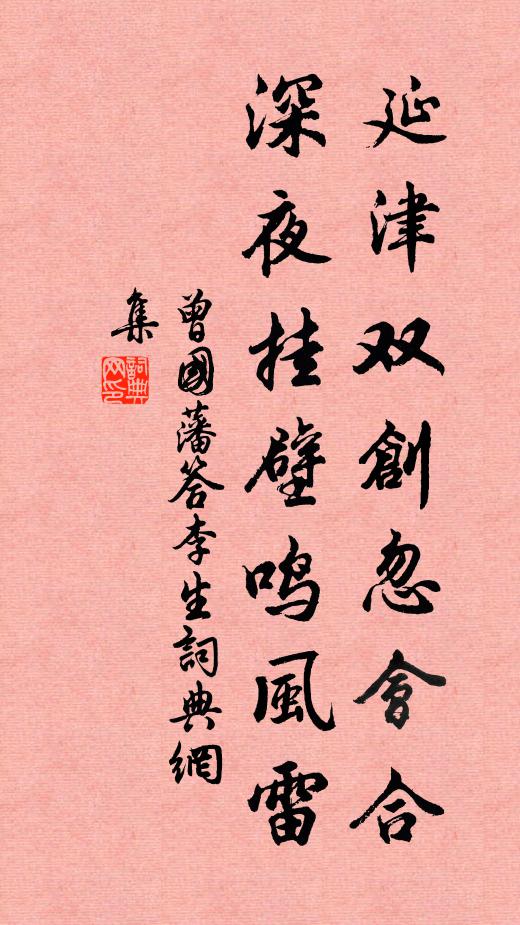 延津双創忽會合
深夜挂壁鸣風雷
曾國藩答李生詞典網
集
詞典網印